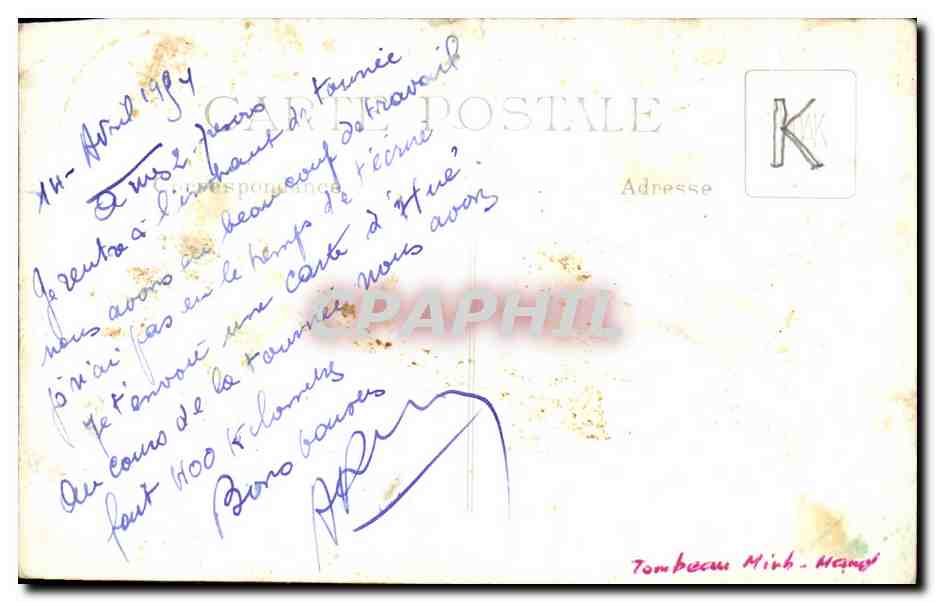 CARTE POSTALE
Correspondance
Adresse
K
14 - Avril 1954
Je rentre à l'instant de tournée
nous avons eu beaucoup de travail
je n'ai pas eu le temps de t'écrire
Je t'envoie une carte d'Hué
Au cours de la tournée nous avons
fait 400 Kilometres
Bons baisers
CPAPHIL
Tombeau Minh - Mang